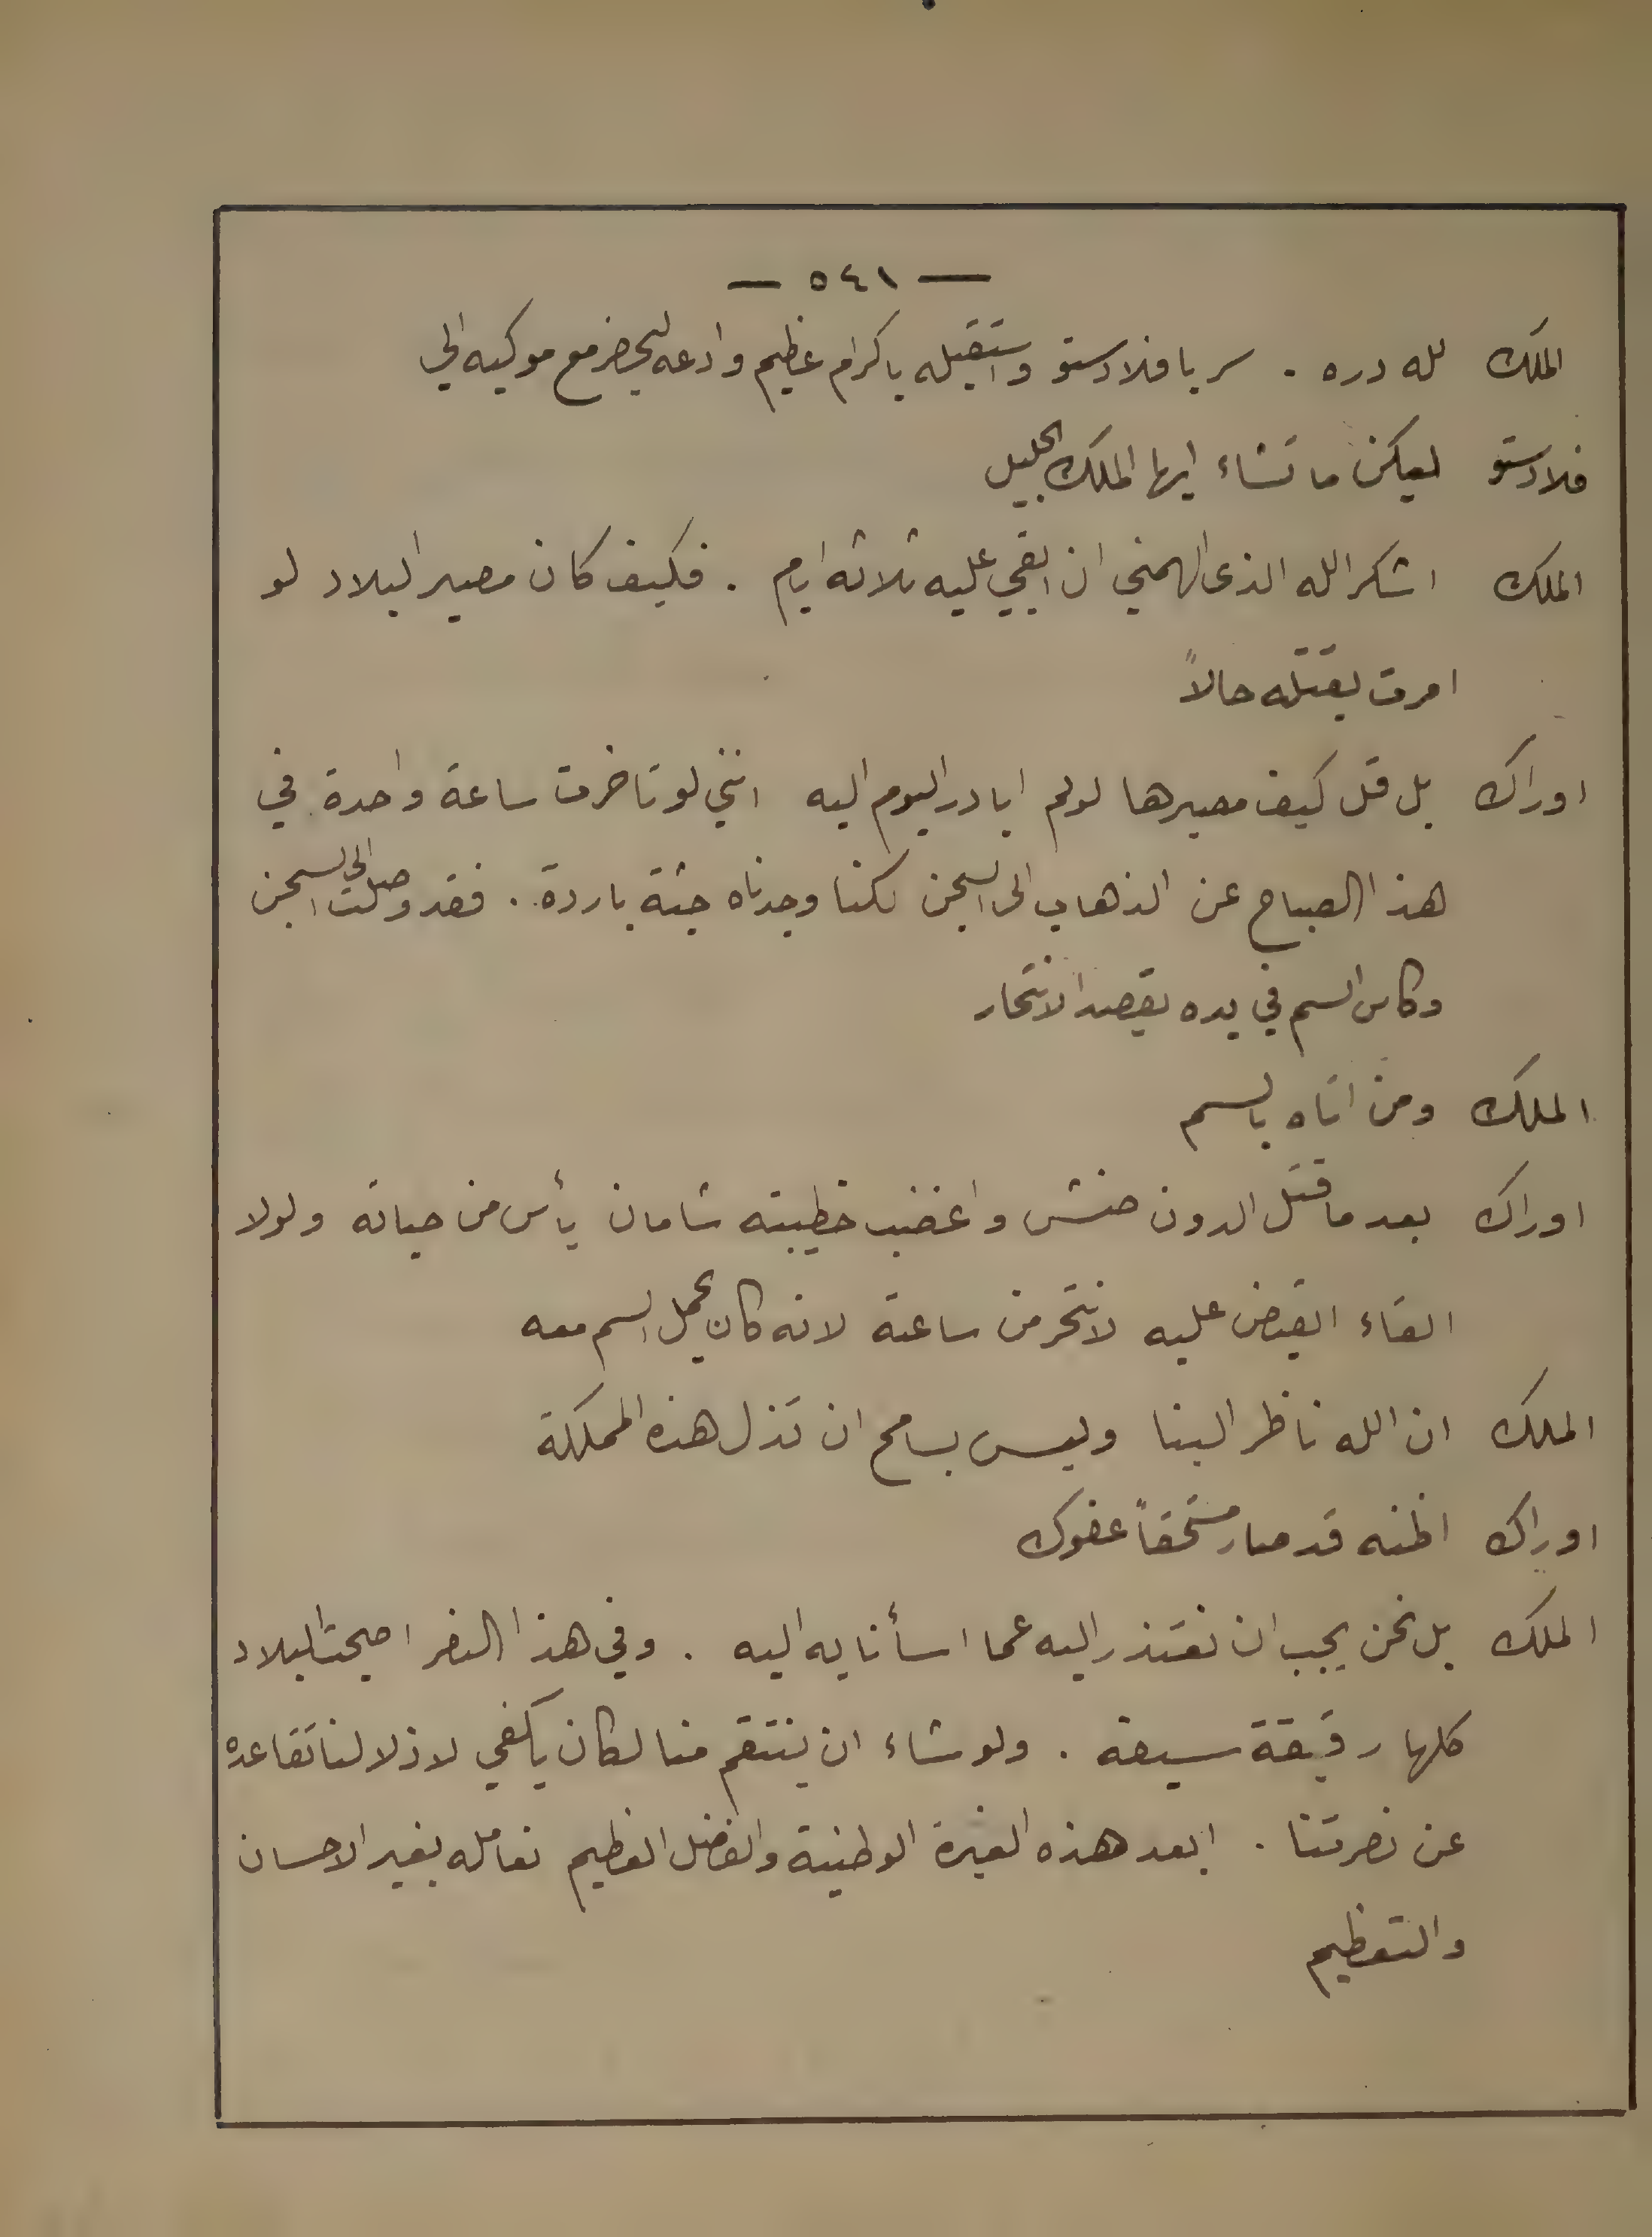 — ٥٤١ —
الملك لله دره . سر يا فلادستو واستقبله باكرام عظيم وادعه ليحضر مع موكبه الي
فلادستو ليكن ما تشاء ايها الملك الجليل
الملك اشكر الله الذى الهمني ان ابقي عليه ثلاثة ايام . فكيف كان مصير البلاد لو
امرت بقتله حالاً
اوراك بل قل كيف مصيرها لو لم ابادر اليوم اليه انني لو تاخرت ساعة واحدة في
هذا الصباح عن الذهاب الى السجن لكنا وجدناه جثة باردة . فقد وصلت الى السجن
وكاس السم في يده يقصد الانتحار
الملك ومن اتاه بالسم
اوراك بعد ما قتل الدون صنش واغضب خطيبته شامان يأس من حياته ولولا
القاء القبض عليه لانتحر من ساعته لانه كان يحمل السم معه
الملك ان الله ناظر الينا وليس بسامح ان تذل هذه المملكة
اوراك اظنه قد صار مستحقاً عفوك
الملك بل نحن يجب ان نعتذر اليه عما اسأنا به اليه . وفي هذا النصر اصبحت البلاد
كلها رقيقة سيفه . ولو شاء ان ينتقم منا لكان يكفي لاذلالنا تقاعده
عن نصرتنا . ابعد هذه الغيرة الوطنية والفضل العظيم نعامله بغير الاحسان
والتعظيم